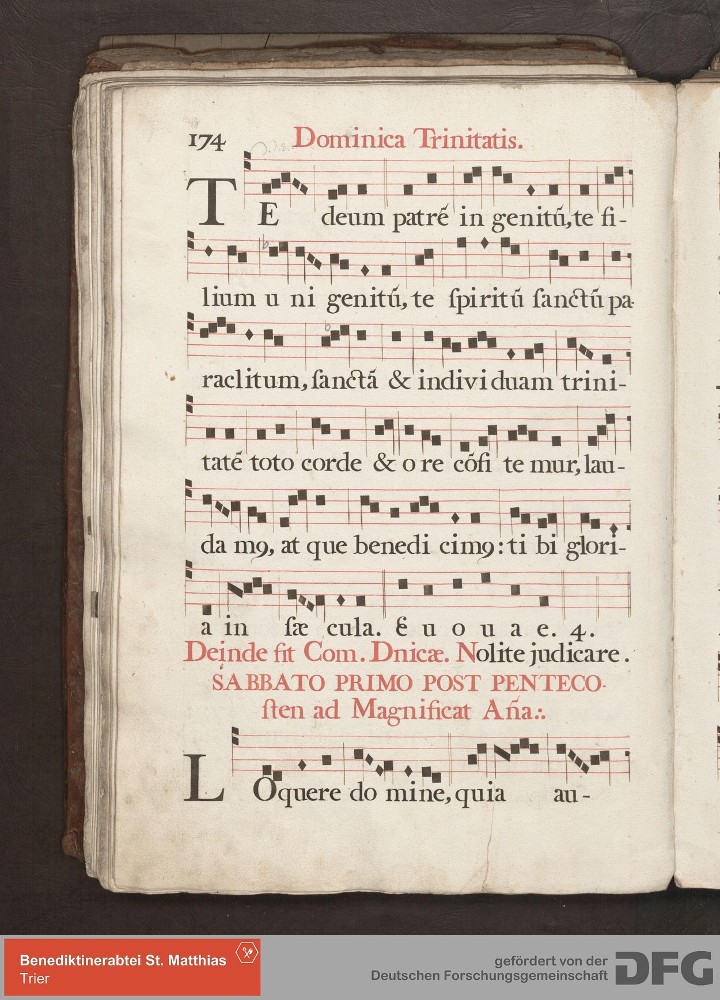 174 Dominica Trinitatis.
TE deum patrē in genitū, te fi-
lium u ni genitū, te ſpiritū ſanctū pa-
raclitum, ſanctā & individuam trini-
tatē toto corde & o re cōfi te mur, lau-
da mꝯ, at que benedi cimꝯ: ti bi glori-
a in ſæ cula. E u o u a e. 4.
Deinde fit Com. Dnicæ. Nolite judicare.
SABBATO PRIMO POST PENTECO-
ſten ad Magnificat Aña.:
LOquere do mine, quia au-
Benediktinerabtei St. Matthias
Trier
gefördert von der
Deutschen Forschungsgemeinschaft DFG